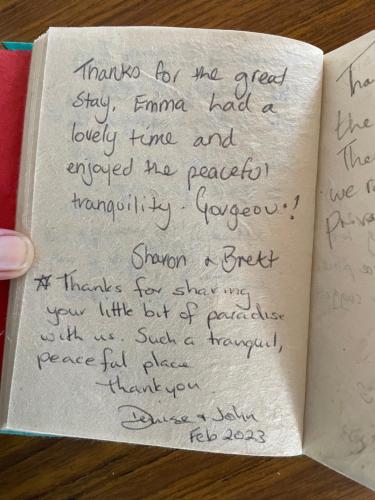 Thanks for the great
stay. Emma had a
lovely time and
enjoyed the peaceful
tranquility. Gorgeous!
Sharon & Brett
☆ Thanks for sharing
your little bit of paradise
with us. Such a tranquil,
peaceful place
thankyou
Denise & John
Feb 2023
the
we